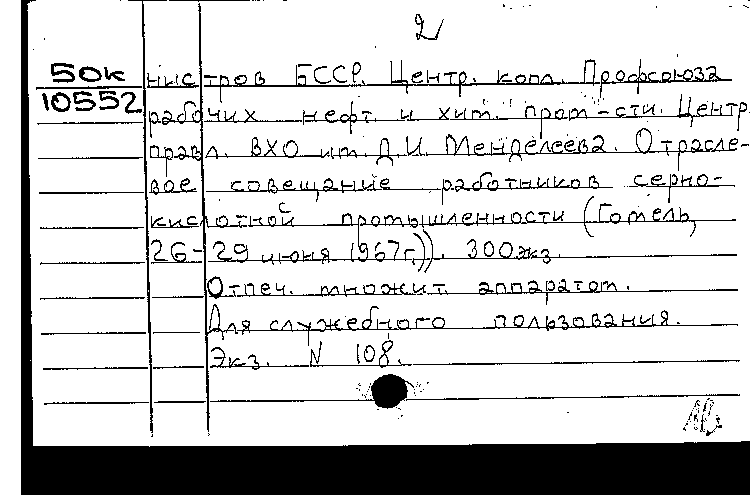 2
50к
10552
нистров БССР. Центр. копл. Профсоюза
рабочих нефт. и хим. пром-сти. Центр.
правл. ВХО им. Д.И. Менделеева. Отрасле-
вое совещание работников серно-
кислотной промышленности (Гомель,
26-29 июня 1967г.)). 300экз.
Отпеч. множит. аппаратом.
Для служебного пользования.
Экз. N 108.